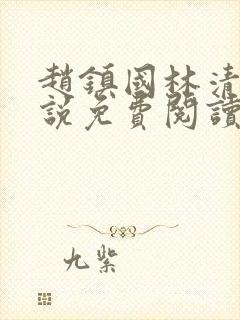 趙鎮國林清
說免費閱讀
九紫